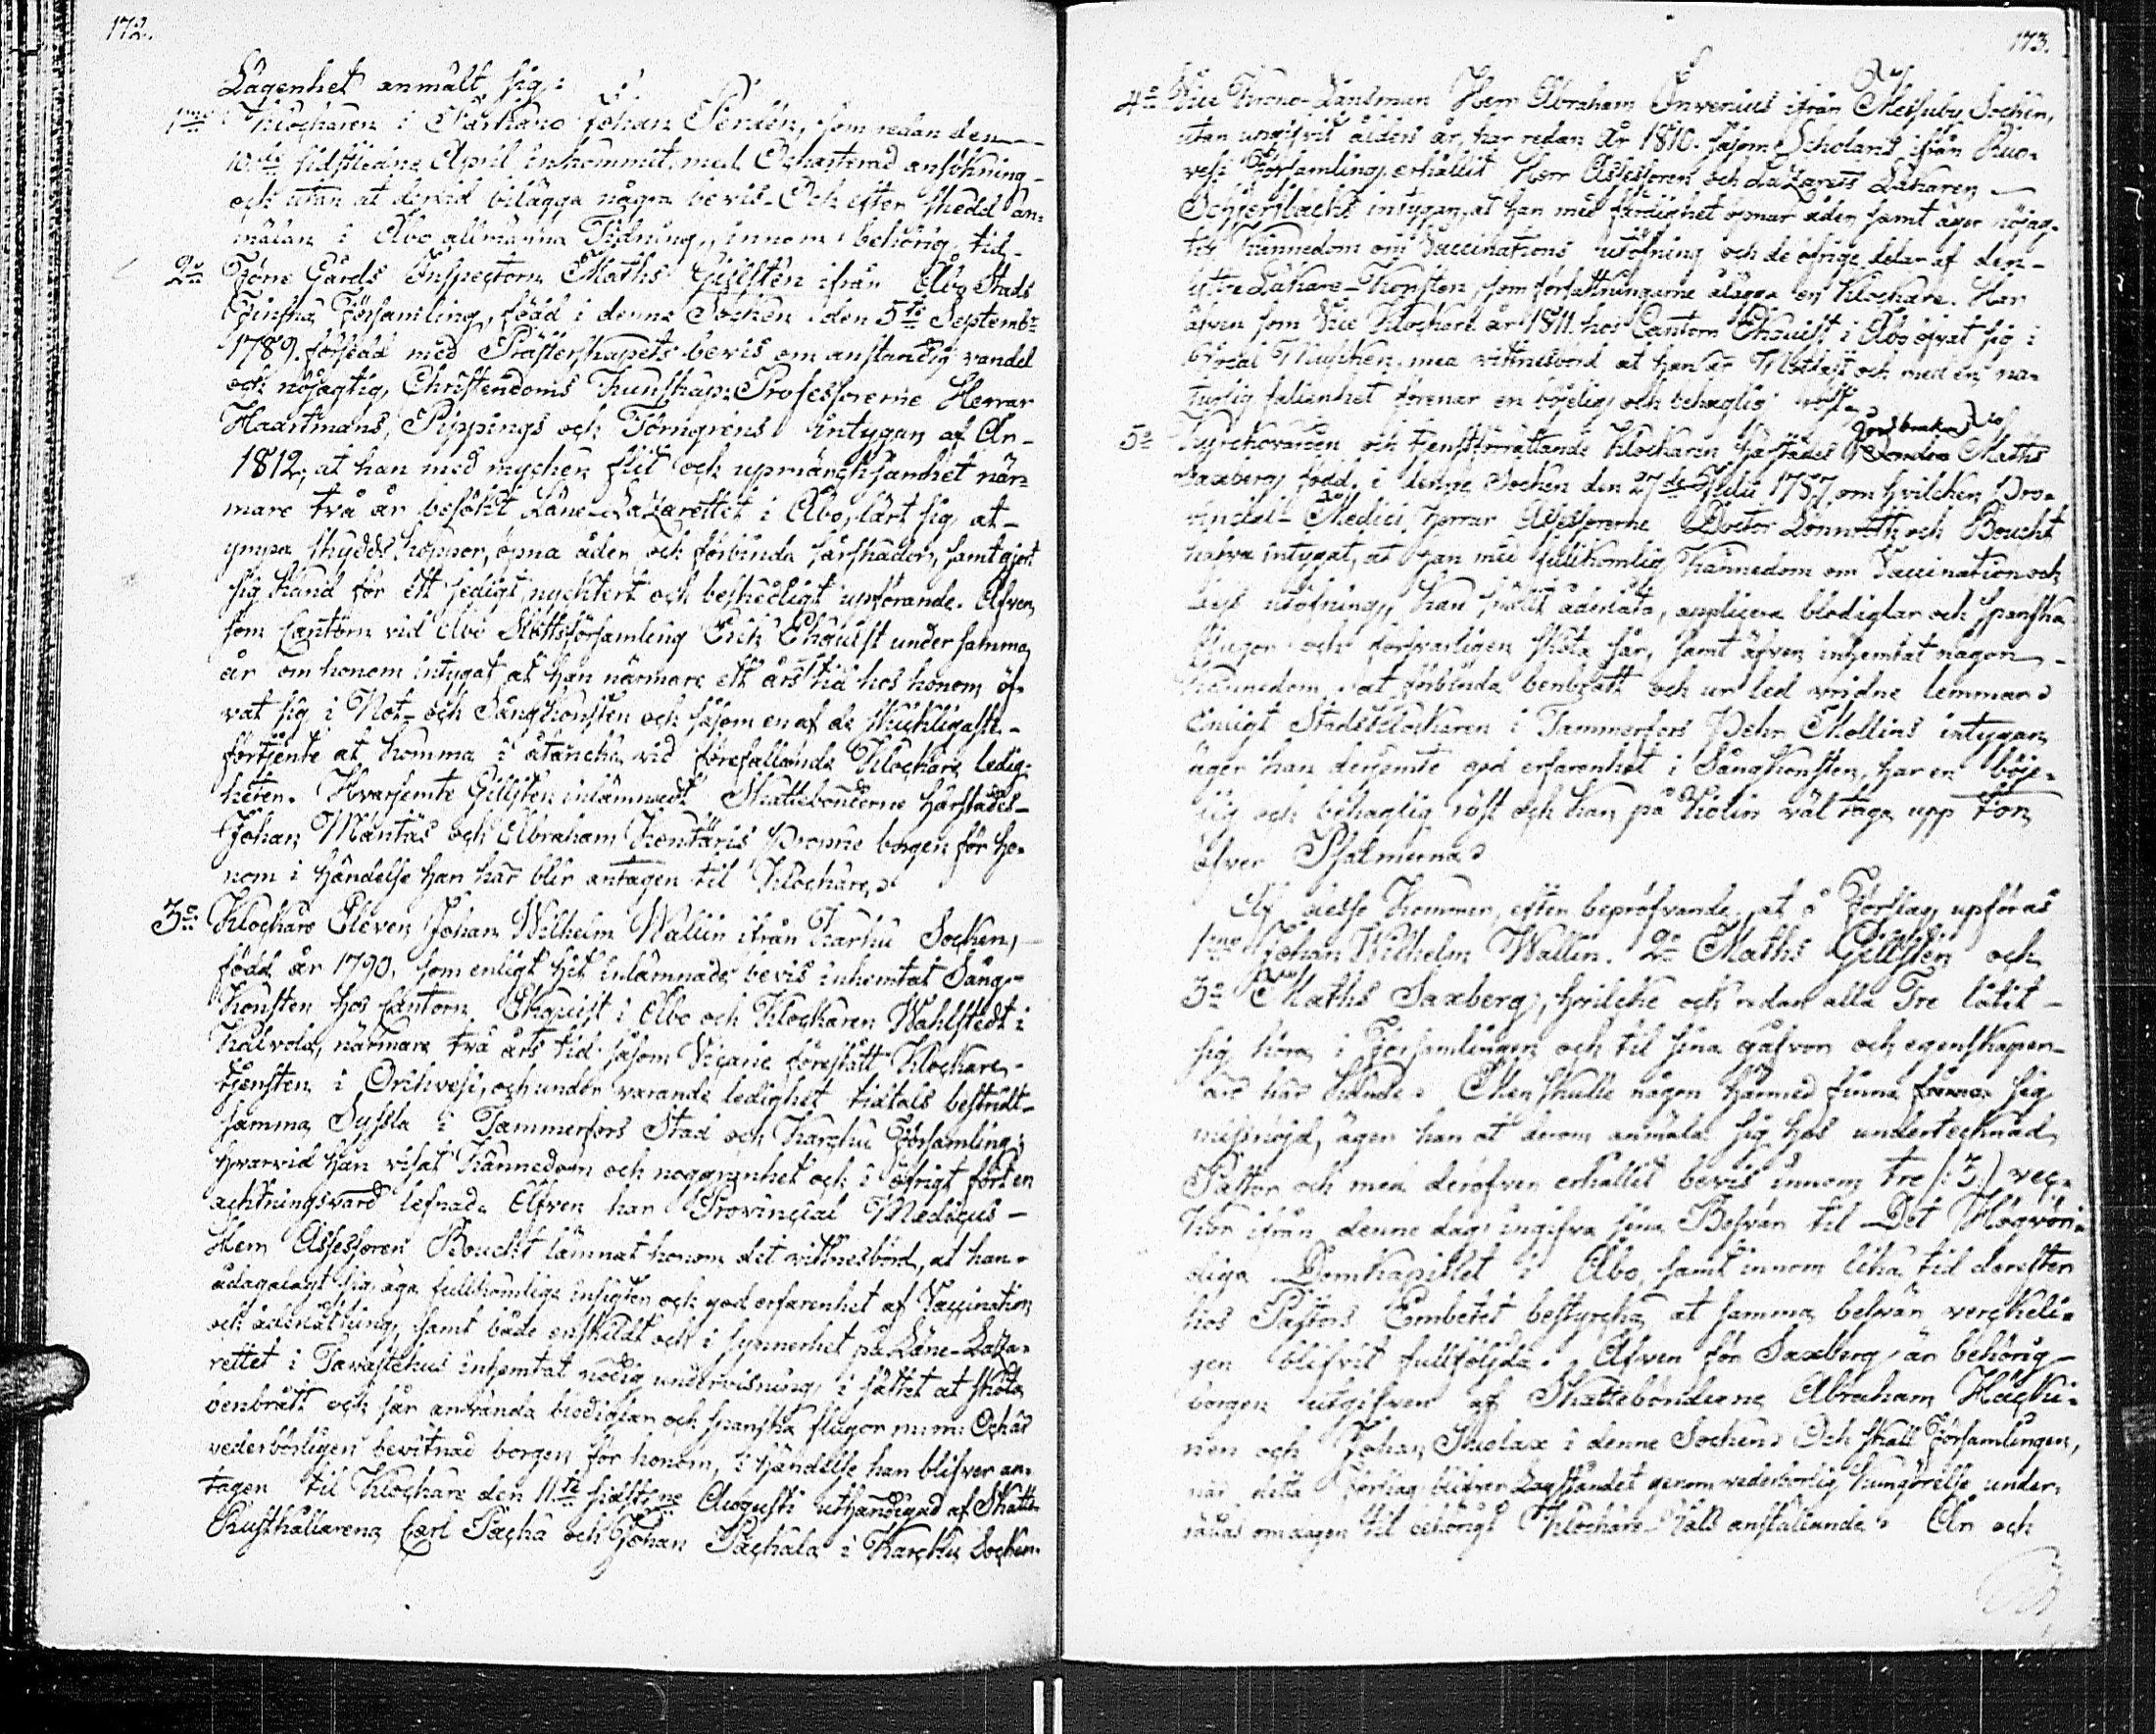 172.
Lägenhet anmält sig:
1mo Klockaren i Pärkano Johan Penden, som redan den
10de sidstledne April inkommit med Ocharterad ansökning
och utan at dervid bilägga några bevis. Och efter skedd an=
mälan i Åbo allmänna Tidning, innom behörig tid.
2o Gårds Inspectorn Maths Gillstén ifrån Åbo Stads
Finska Församling, född i denne Socken den 5te Septembr
1789. försedd med Prästerskapets bevis om anständig vandel
och nöjagtig Christendoms Kunskap: Professorerne Herrar
Haartmans, Pippings och Törngrens intygan af År
1812, at han med mycken flit och upmärcksamhet när=
mare två år besökt Läne-Lazarettet i Åbo, lärt sig at
ympa skyddskoppor, öpna åder och förbinda sårskador, samt gjort
sig känd för ett sedigt, nycktert och beskedligt upförande. Äfven
som Cantorn vid Åbo Slottsförsamling Erik Ehquist under samma
år om honom intygat, at han närmare ett års tid hos honom öf=
vat sig i Not- och Sångkonsten och såsom en af de skickligaste
förtjente at komma i åtancka vid förefallande Klockare ledig=
heter. Hvarjemte Gillstén inlämnadt Skattebönderne härstädes
Johan Mäntäs och Abraham Kontäris borgen för ho=
nom i händelse han här blir antagen til Klockare.
3o Klockare Eleven Johan Wilhelm Wallin ifrån Karku Socken,
född år 1790, som enligt hit inlämnade bevis inhemtat Sång=
konsten hos Cantorn Ehquist i Åbo och Klockaren Wahlstedt i
Kalvola, närmare två års tid såsom Vicarie förestått Klockare=
tjensten i Orihvesi, och under varande ledighet tidtals bestridt
samma Syssla i Tammerfors Stad och Karcku Församling;
hvarvid han visat kännedom och noggranhet och i öfrigt fört en
acktningsvärd lefnad. Äfven har Provincial Medicus
Herr Assessoren Boucht lämnat honom det vittnesbörd, at han
ådagalagt sig äga fullkomliga insigter och god erfarenhet af Vaccination
och åderlåtning, samt både enskildt och i synnerhet på Läne-Laza=
rettet i Tavastehus inhemtat nödig undervisning i sättet at sköta
benbrått och sår använda blodiglar och spanska flugor m.m. Och är
vederbörligen bevitnad borgen för honom, i händelse han blifver an=
tagen til Klockare den 11te sidstlne Augusti uthändigad af Skatte
Rusthållarena Carl Pacha och Johan Pachala i Karcku Socken.
173.
4o Vice Krono-Länsman Herr Abraham Invenius ifrån Messuby Socken,
utan upgifvit ålders år, har redan År 1810. såsom Scholant ifrån Ruo=
vesi Församling, erhållit Herr Assessoren och Lazaretts Läkaren
intygan, at han med färdighet öpnar åder, samt äger nöjag=
tig kännedom om Vaccinations utöfning och de öfrige delar af den
yttre Läkare-Konsten, som författningarne ålägga en Klockare. Har
äfven som Vice Klockare år 1811. hos Cantorn Ehquist i Åbo öfvat sig i
Vocal Musiken, med vittnesbörd at han är och med en na=
turlig fallenhet förenar en böjelig och behaglig röst.
5o Kyrckovärden och tjenstförrättande Klockaren härstädes Jordbrukar Maths
Saxberg född i denne Socken den 27de Julii 1757, om hvilcken Pro=
vincial-Medici herrar Assessorerne Doctor Lönnroth och Boucht
hafva intygat, at han med fullkomlig kännedom om Vaccination och
dess utöfning, kan åderlåta, applicera blodiglar och spanska
flugor och försvarligen sköta sår, samt äfven inhemtat någon
kännedom at förbinda benbrått och ur led vridne lemmar.
Enligt Stadsklockaren i Tammerfors Pehr Mollins intygan
äger han derjemte god erfarenhet i Sångkonsten, har en böje=
lig och behaglig röst och kan på Violin väl taga upp ton
öfver Psalmerna.
Af desse kommer, efter bepröfvande, at å Förslag upföras
1mo Johan Wilhelm Wallin. 2o Maths Gillstén och
3o Maths Saxberg, hvilcke och redan alla Tre låtit
sig höra i Församlingen och til sina gåfvor och egenskaper
äro här kände. Men skulle någon härmed finna sig
missnöjd, äger han at derom anmäla sig hos undertecknad
Pastor och med deröfver erhållit bevis innom tre (:3:) vec=
kor ifrån denne dag ingifva sina Besvär til Det Högvör=
diga Domkapitlet i Åbo, samt innom lika tid derefter
hos Pastors Embetet bestyrcka, at samma besvär vercheli=
gen blifvit fullföljda. Äfven för Saxberg är behörig
borgen utgifven af Skattebönderne Abraham Häcki=
nen och Johan Skolax i denne Socken. Och skall Församlingen,
när detta Förslag blifver Lagståndet genom vederbörlig kungörelse under=
rättas om dagen til behörigt Klockare-Vals anställande. År och